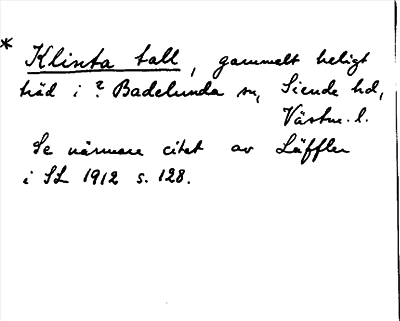 * Klinta tall, gammelt heligt
träd i ? Badelunda sn, Siende hd,
Västm. l.
Se närmare citat av Läffler
i SL 1912 s. 128.